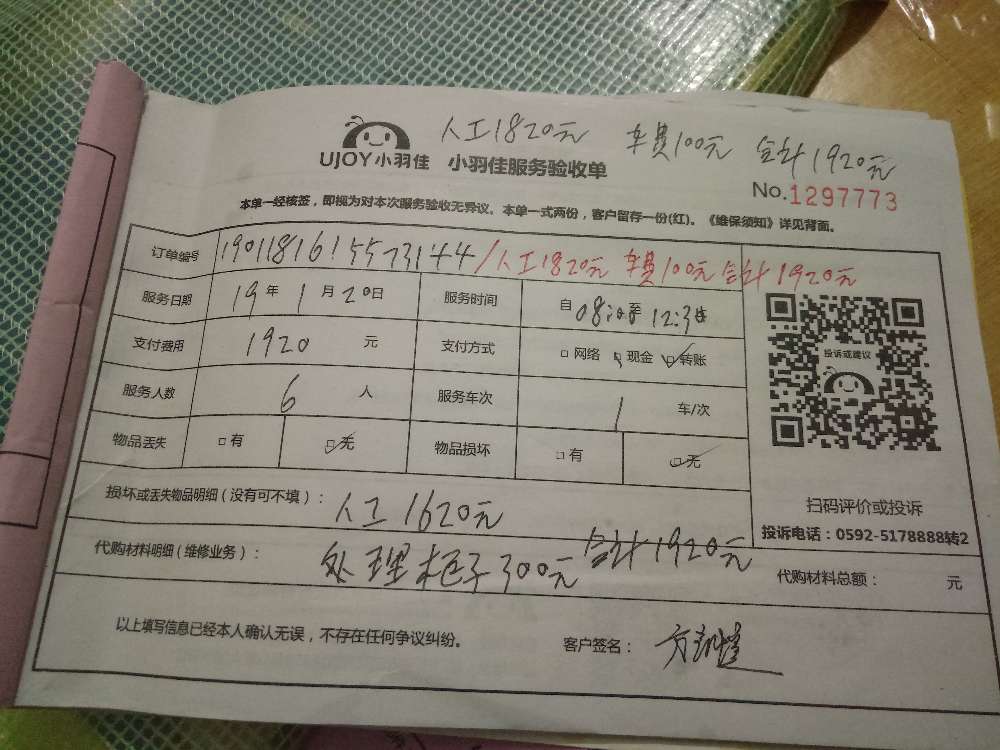 人工1820元 车费100元 合计1920元
UJOY小羽佳 小羽佳服务验收单
No.1297773
本单一经核签，即视为对本次服务验收无异议。本单一式两份，客户留存一份(红)。《维保须知》详见背面。
订单编号 19011816155573144/人工1820元 车费100元合计1920元
服务日期 19年1月20日 服务时间 自08:00至12:30
支付费用 1920元 支付方式 □网络 □现金 □转账
投诉或建议
服务人数 6人 服务车次 1车/次
物品丢失 □有 □无 物品损坏 □有 □无
损坏或丢失物品明细（没有可不填）： 人工1620元
扫码评价或投诉
投诉电话：0592-5178888转2
代购材料明细（维修业务）： 处理柜子300元 合计1920元
代购材料总额： 元
以上填写信息已经本人确认无误，不存在任何争议纠纷。
客户签名： 方